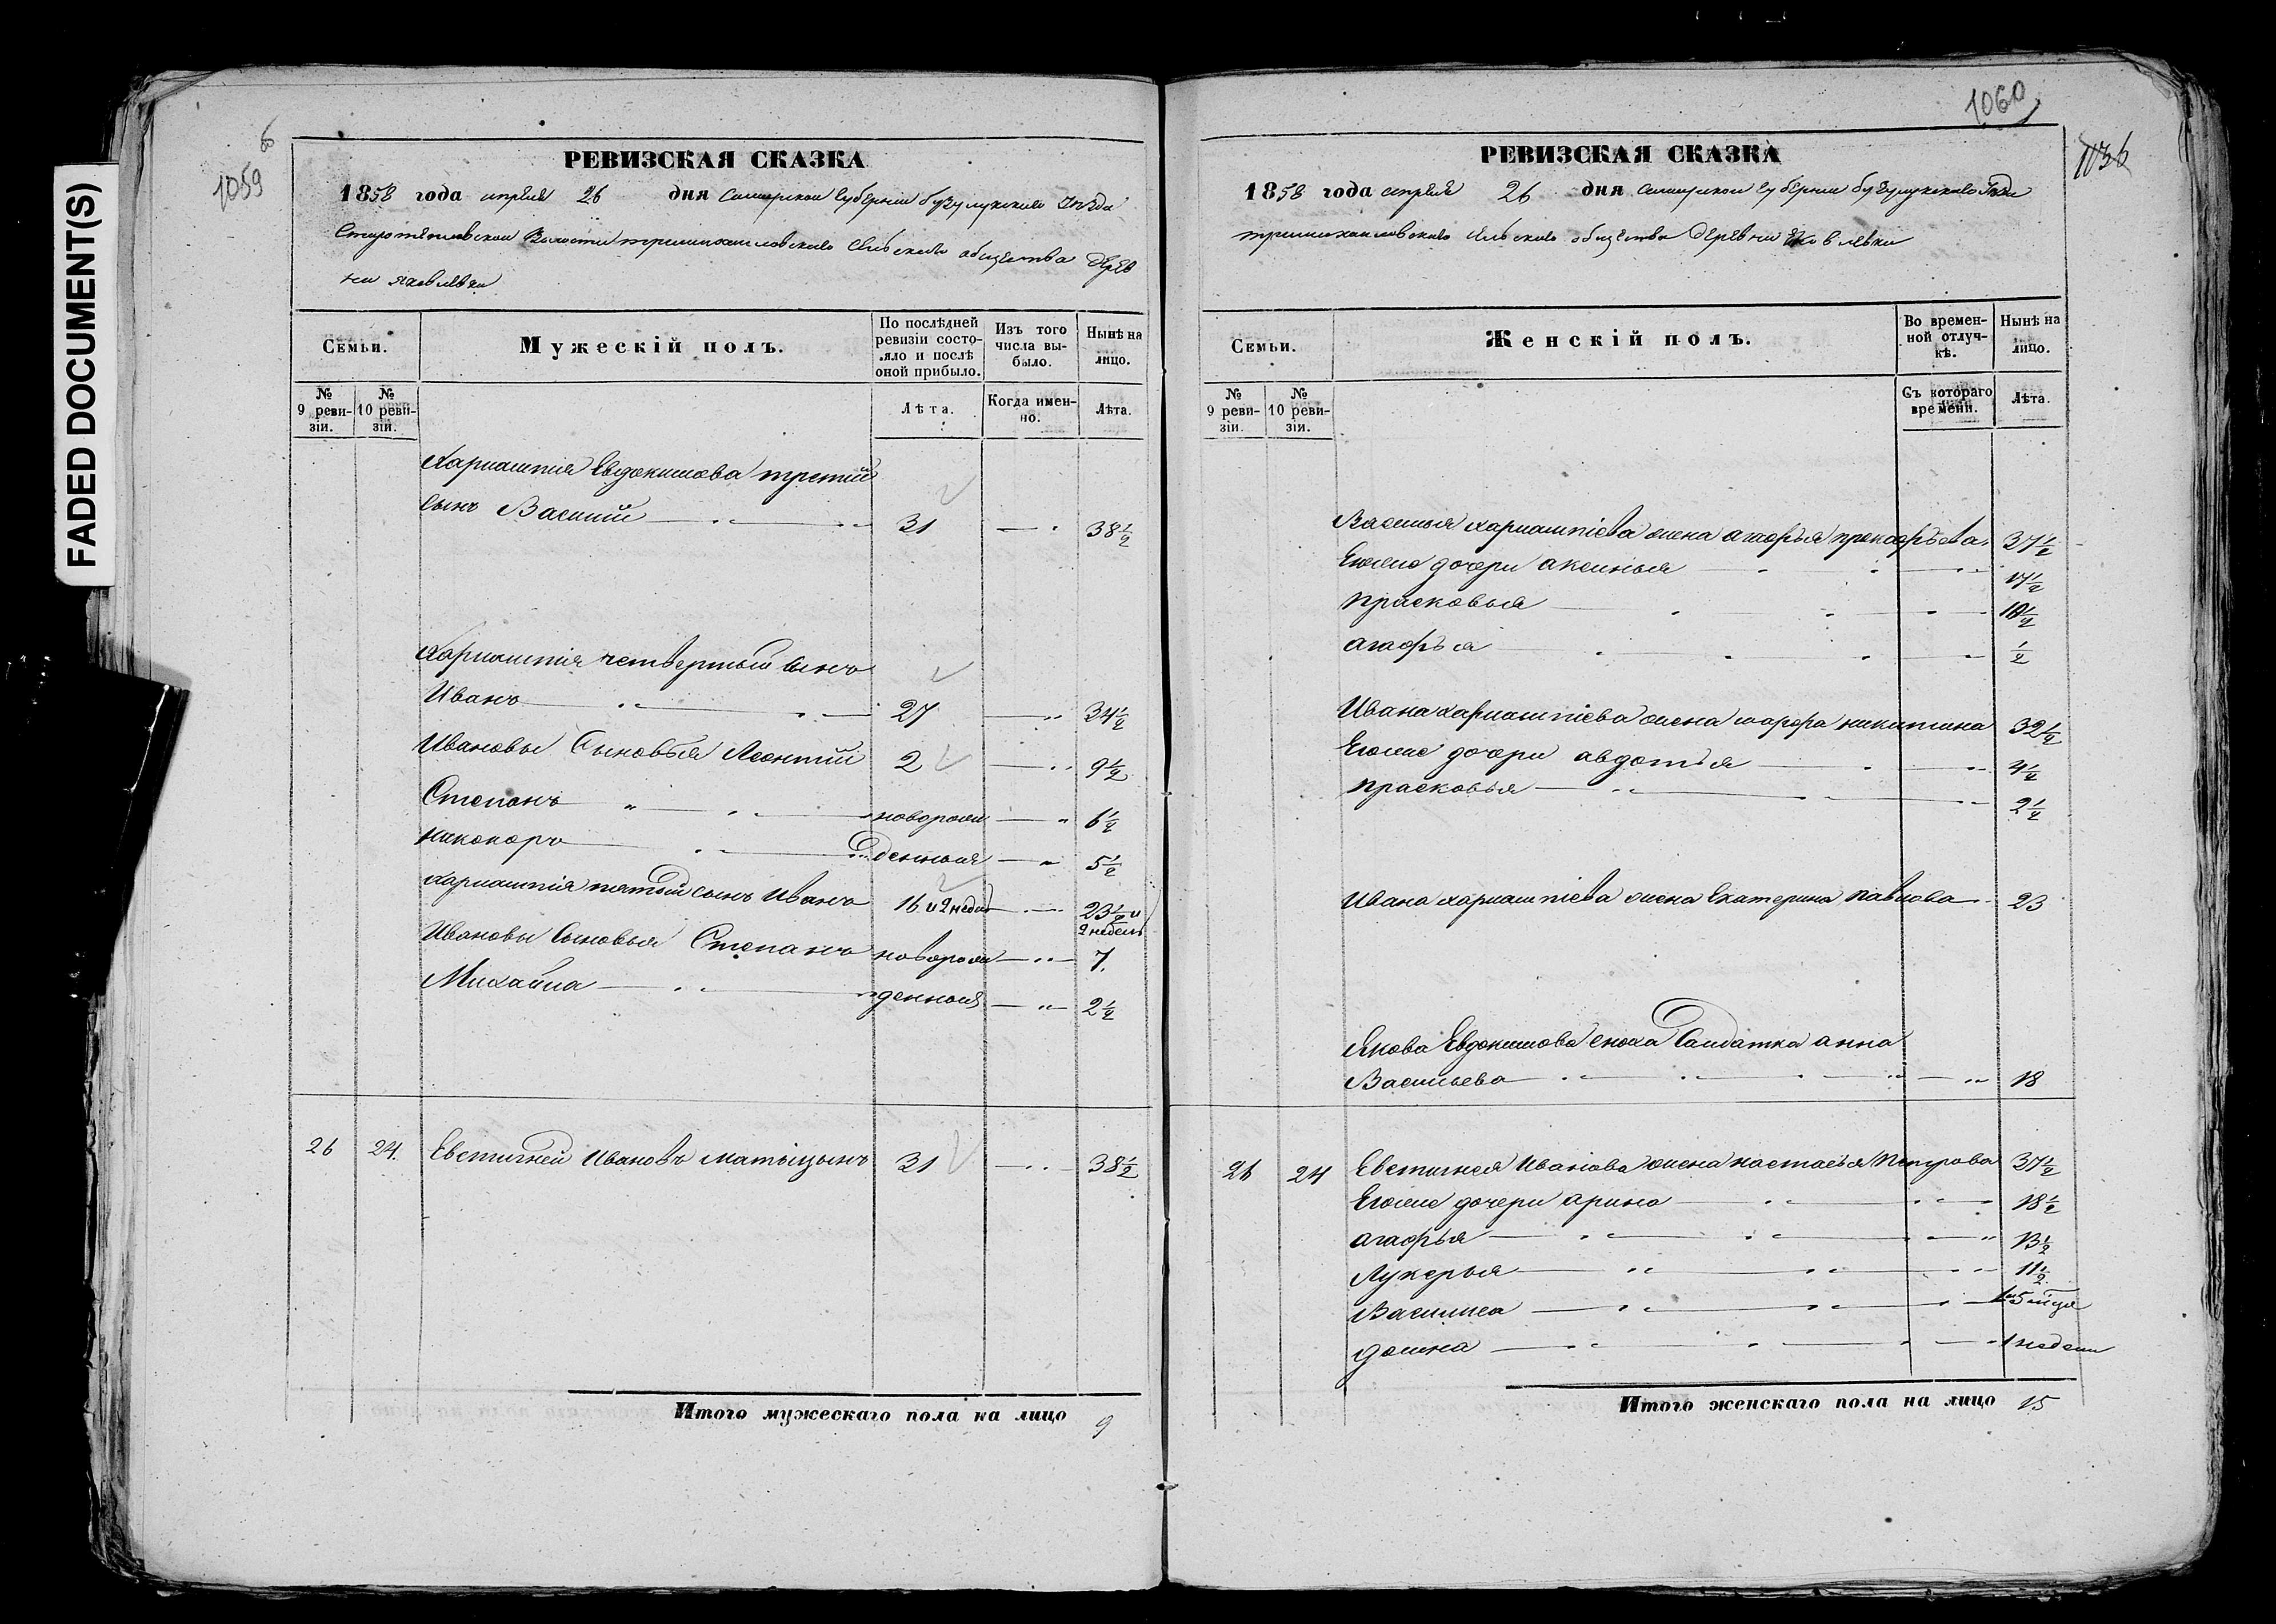 FADED DOCUMENT(S)
6
1059
РЕВИЗСКАЯ СКАЗКА
1858 года апреля 26 дня Самарской губернии бузулукскаго Уезда
Волости сельскаго общества дерев
ни яковлевки
Семьи.
Мужескій полъ.
По послѣдней ревизіи состояло и послѣ оной прибыло.
Изъ того числа выбыло.
Нынѣ на лицо.
№ 9 ревизіи.
№ 10 ревизіи.
Лѣта.
Когда именно.
Лѣта.
Харлампія Евдокимова третий
сынъ Василий 31 38½
Харлампія четвертый сынъ
Иванъ 27 34½
Ивановы Сыновья Леонтий 2 9½
Степанъ новорож 6½
никаноръ денныя 5½
харлампія пятый сынъ Иванъ 16 и 2 недел 23½ и
2 недели
Ивановы Сыновья Степанъ новорож 7.
Михайла денныя 2½
26 24. Евстигней Ивановъ матыцынъ 31 38½
Итого мужескаго пола на лицо 9
1060
1036
РЕВИЗСКАЯ СКАЗКА
1858 года апреля 26 дня Самарской губернии бузулукскаго Уезда
сельскаго общества деревни Яковлевки
Семьи.
Женскій полъ.
Во временной отлучкѣ.
Нынѣ на лицо.
№ 9 ревизіи.
№ 10 ревизіи.
Съ котораго времени.
Лѣта.
Василья харлампіева жена агафья прокофьева 37½
Егоже дочери аксинья 17½
прасковья 10½
агафья ½
Ивана харлампіева жена марфа никитина 32½
Егоже дочери авдотья 4½
прасковья 2½
Ивана харлампіева жена Екатерина павлова 23
Якова Евдокимова сноха Салдатка анна
Васильева 18
26 24 Евстигнея Иванова жена настасья Петрова 37½
Егоже дочери арина 18½
агафья 13½
Лукерья 11½
Василиса
домна 1 недели
Итого женскаго пола на лицо 15